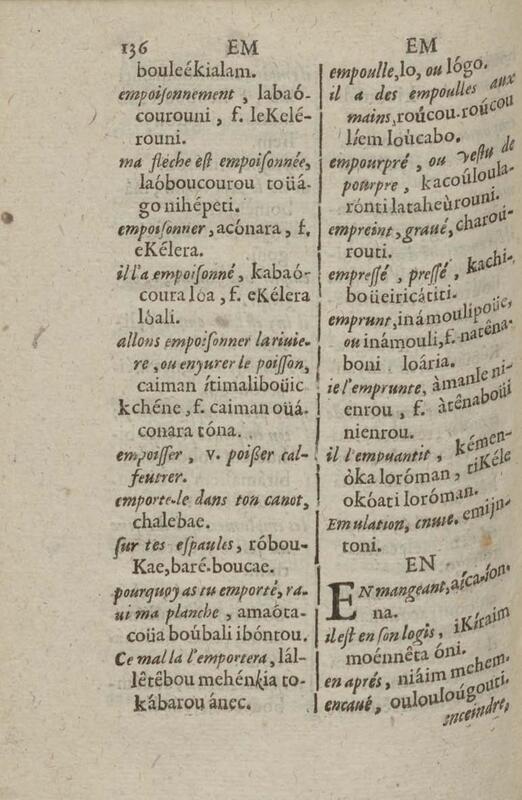 136 EM
bouleékialam.
empoiſonnement, labaó-
courouni, f. leKelé-
rouni.
ma fleche eſt empoiſonnée,
laóboucourou toüá-
go nihépeti.
empoiſonner, acónara, f.
eKélera.
il l'a empoiſonné, kabaó-
coura lóa, f. eKélera
lóali.
allons empoiſonner la riuie-
re, ou enyurer le poiſſon,
caiman ítimaliboüic
kchéne, f. caiman oüá-
conara tóna.
empoiſſer, v. poißer cal-
feutrer.
emporte-le dans ton canot,
chalebae.
ſur tes eſpaules, róbou-
Kae, baré-boucae.
pourquoy as tu emporté, ra-
ui ma planche, amaóta-
coüa boúbali ibóntou.
Ce mal la l'emportera, lál-
lêtêbou mehénkia to-
kábarou ánec.
EM
empoulle, lo, ou lógo.
il a des empoulles aux
mains, roúcou-roúcou
líem loùcabo.
empourpré, ou veſtu de
pourpre, kacoúloula-
rónti lataheùrouni.
empreint, graué, charou-
routi.
empreſſé, preſſé, kachi-
boüeiricátiti.
emprunt, inámoulipoüe,
ou inámouli, f. naténa-
boni loária.
ie l'emprunte, àmanle ni-
enrou, f. àtênaboüi
nienrou.
il l'empuantit, kémen-
òka loróman, tiKéle
okóati loróman.
Emulation, enuie, emijn-
toni.
EN
EN mangeant, aícaſon-
na.
il eſt en ſon logis, iKíraim
moénnêta óni.
en aprés, niáim mehem.
encaué, ouloulougouti.
enceindre,